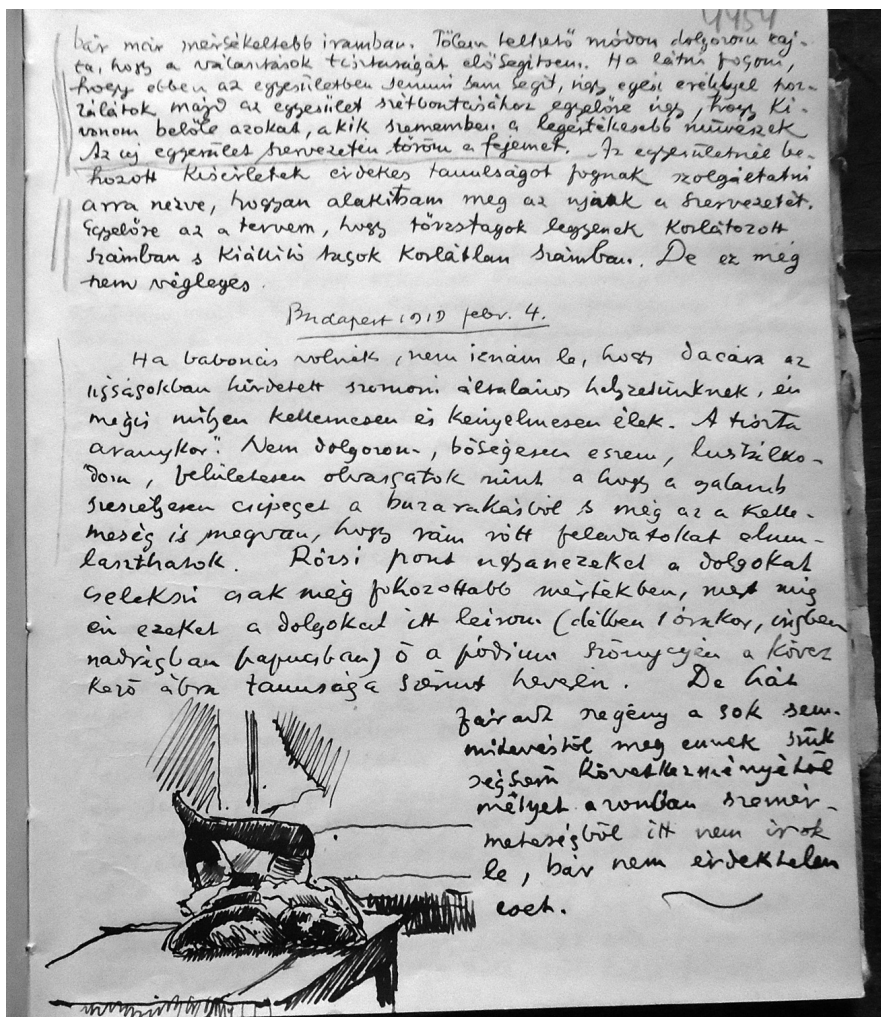 4454
bár már mérsékeltebb iramban. Tőlem telhető módon dolgozom raj-
ta, hogy a választások tisztaságát elősegítsem. Ha látni fogom,
hogy ebben az egyesületben semmi sem segít, úgy egész eréllyel hoz-
zálátok majd az egyesület szétbontásához egyelőre úgy, hogy ki-
vonom belőle azokat, a kik szememben a legértékesebb művészek
Az új egyesület szervezetén töröm a fejemet. Az egyesületnél be-
hozott kisérletek érdekes tanulságot fognak szolgáltatni
arra nézve, hogyan alakítsam meg az ujnak a szervezetét.
Egyelőre az a tervem, hogy törzstagok legyenek korlátozott
számban s kiállító tagok korlátlan számban. De ez még
nem végleges.
Budapest 1919 febr. 4.
Ha babonás volnék, nem irnám le, hogy dacára az
ujságokban hirdetett szomorú általános helyzetünknek, én
mégis milyen kellemesen és kényelmesen élek. A tiszta
aranykor". Nem dolgozom, bőségesen eszem, lustálko-
dom, felületesen olvasgatok mint a hogy a galamb
szeszélyesen csipeget a buzarakásból s még az a kelle-
messég is megvan, hogy rám rótt feladatokat elmu-
laszthatok. Rózsi pont ugyanezeket a dolgokat
cselekszi csak még fokozottabb mértékben, mert míg
én ezeket a dolgokat itt leirom (délben 1 órakor, ingben
nadrágban papucsban) ő a pódium szőnyegén a követ
kező ábra tanusága szerint heverén. De hát
fáradt szegény a sok sem-
mitevéstől meg ennek szük
ségszerű következményétől
mélyet azonban szemér-
metességből itt nem irok
le, bár nem érdektelen
eset.